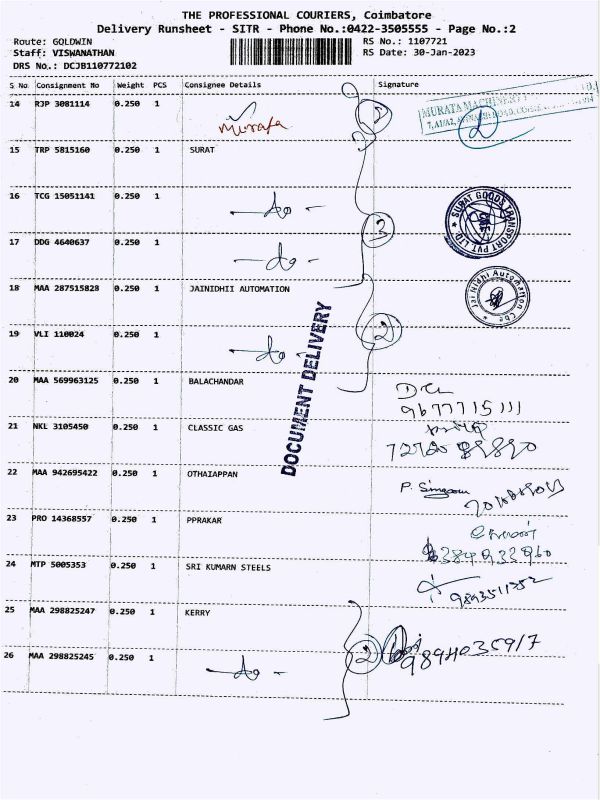 THE PROFESSIONAL COURIERS, Coimbatore
Delivery Runsheet - SITR - Phone No.:0422-3505555 - Page No.:2
Route: GOLDWIN
Staff: VISWANATHAN
DRS No.: DCJB110772102
RS No.: 1107721
RS Date: 30-Jan-2023
S No Consignment No Weight PCS Consignee Details Signature
14 RJP 3081114 0.250 1 Murata
MURATA MACHINERY
2
15 TRP 5815160 0.250 1 SURAT
16 TCG 15051141 0.250 1 -do-
3
SURAT GOODS TRANSPORT PVT. LTD.
17 DDG 4640637 0.250 1 -do-
18 MAA 287515828 0.250 1 JAINIDHII AUTOMATION
Jai Nidhi Automation Cbe
19 VLI 110024 0.250 1 -do-
2
DOCUMENT DELIVERY
20 MAA 569963125 0.250 1 BALACHANDAR
9677715111
21 NKL 3105450 0.250 1 CLASSIC GAS
22 MAA 942695422 0.250 1 OTHAIAPPAN
23 PRO 14368557 0.250 1 PPRAKAR
24 MTP 5005353 0.250 1 SRI KUMARN STEELS
25 MAA 298825247 0.250 1 KERRY
2
26 MAA 298825245 0.250 1 -do-